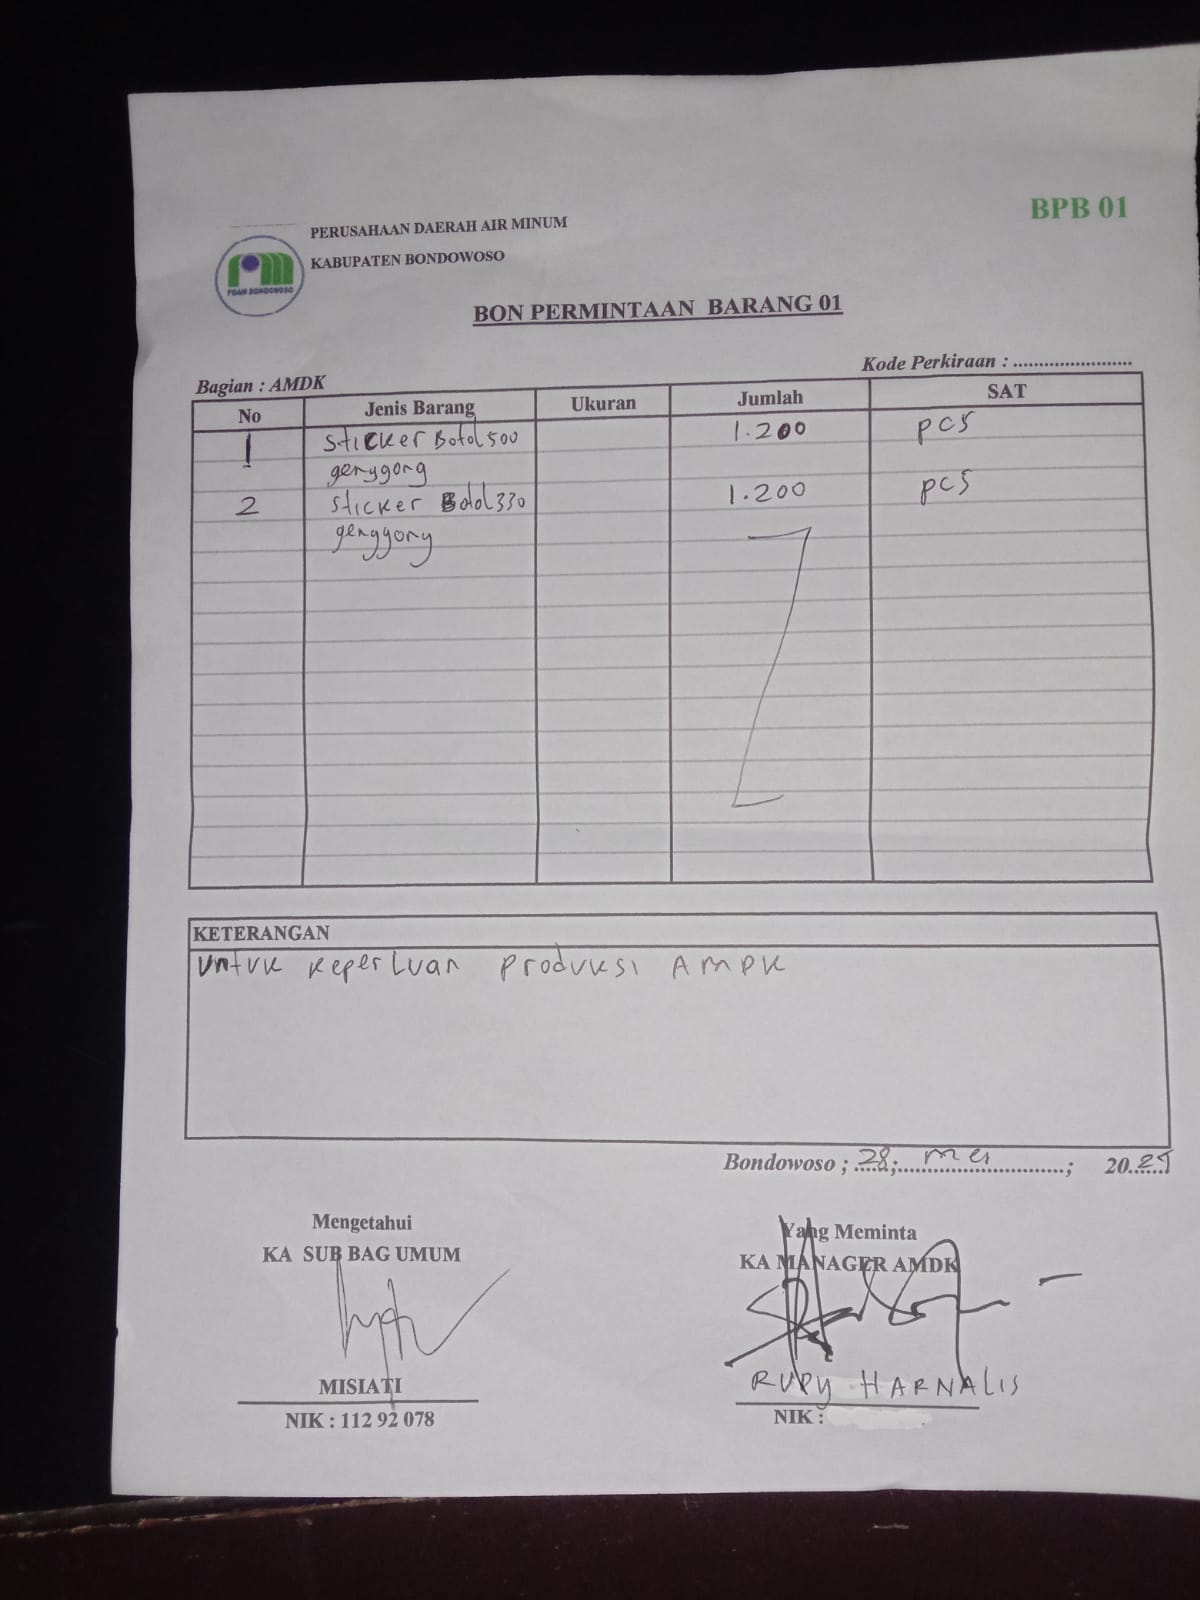 BPB 01
PERUSAHAAN DAERAH AIR MINUM
KABUPATEN BONDOWOSO
PDAM BONDOWOSO
BON PERMINTAAN BARANG 01
Kode Perkiraan : .......................
Bagian : AMDK
No Jenis Barang Ukuran Jumlah SAT
1 Sticker Botol 500 1.200 pcs
genggong
2 Sticker Botol 330 1.200 pcs
genggong
KETERANGAN
Untuk Keperluan Produksi AMDK
Bondowoso ; 28; Mei ; 2025
Mengetahui
KA SUB BAG UMUM
MISIATI
NIK : 112 92 078
Yang Meminta
KA MANAGER AMDK
RUDY HARNALIS
NIK :